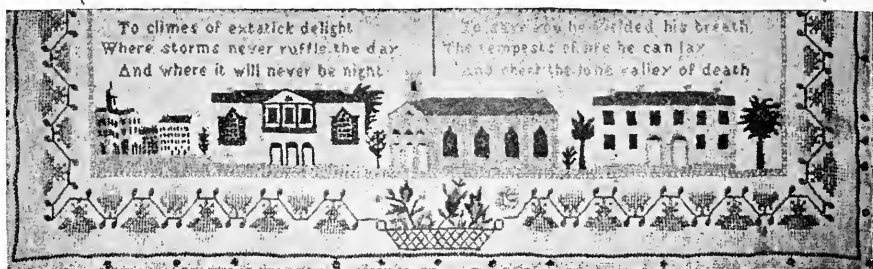 To climes of extatick delight
Where storms never ruffle the day
And where it will never be night
To save you he yielded his breath,
The tempests of life he can lay
And cheer the lone valley of death